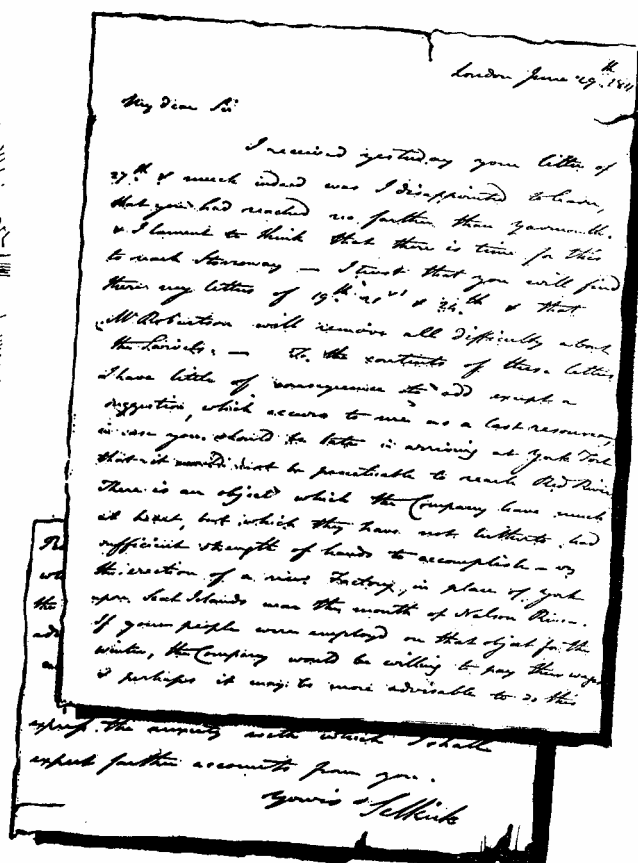 London June 29th. 1811
My dear Sir
I received yesterday your letter of
27th & much indeed was I disappointed to learn,
that you had reached no farther than Yarmouth.
& I lament to think that there is time for this
to reach Stornoway — I trust that you will find
there my letters of 19th 21st & 24th & that
Mr Robertson will remove all difficulty about
the — To the contents of these letters
I have little of consequence to add except a
suggestion, which occurs to me as a last resource,
in case you should be late in arriving at York Fort
that it would not be practicable to reach Red River
There is an object which the Company have much
at heart, but which they have not hitherto had
sufficient strength of hands to accomplish — viz
the erection of a new Factory, in place of York
upon Seal Islands near the mouth of Nelson River.
If your people were employd on that object for the
winter, the Company would be willing to pay their wages
& perhaps it may be more advisable to do this
the
express the anxiety with which I shall
expect further accounts from you.
Yours &c Selkirk